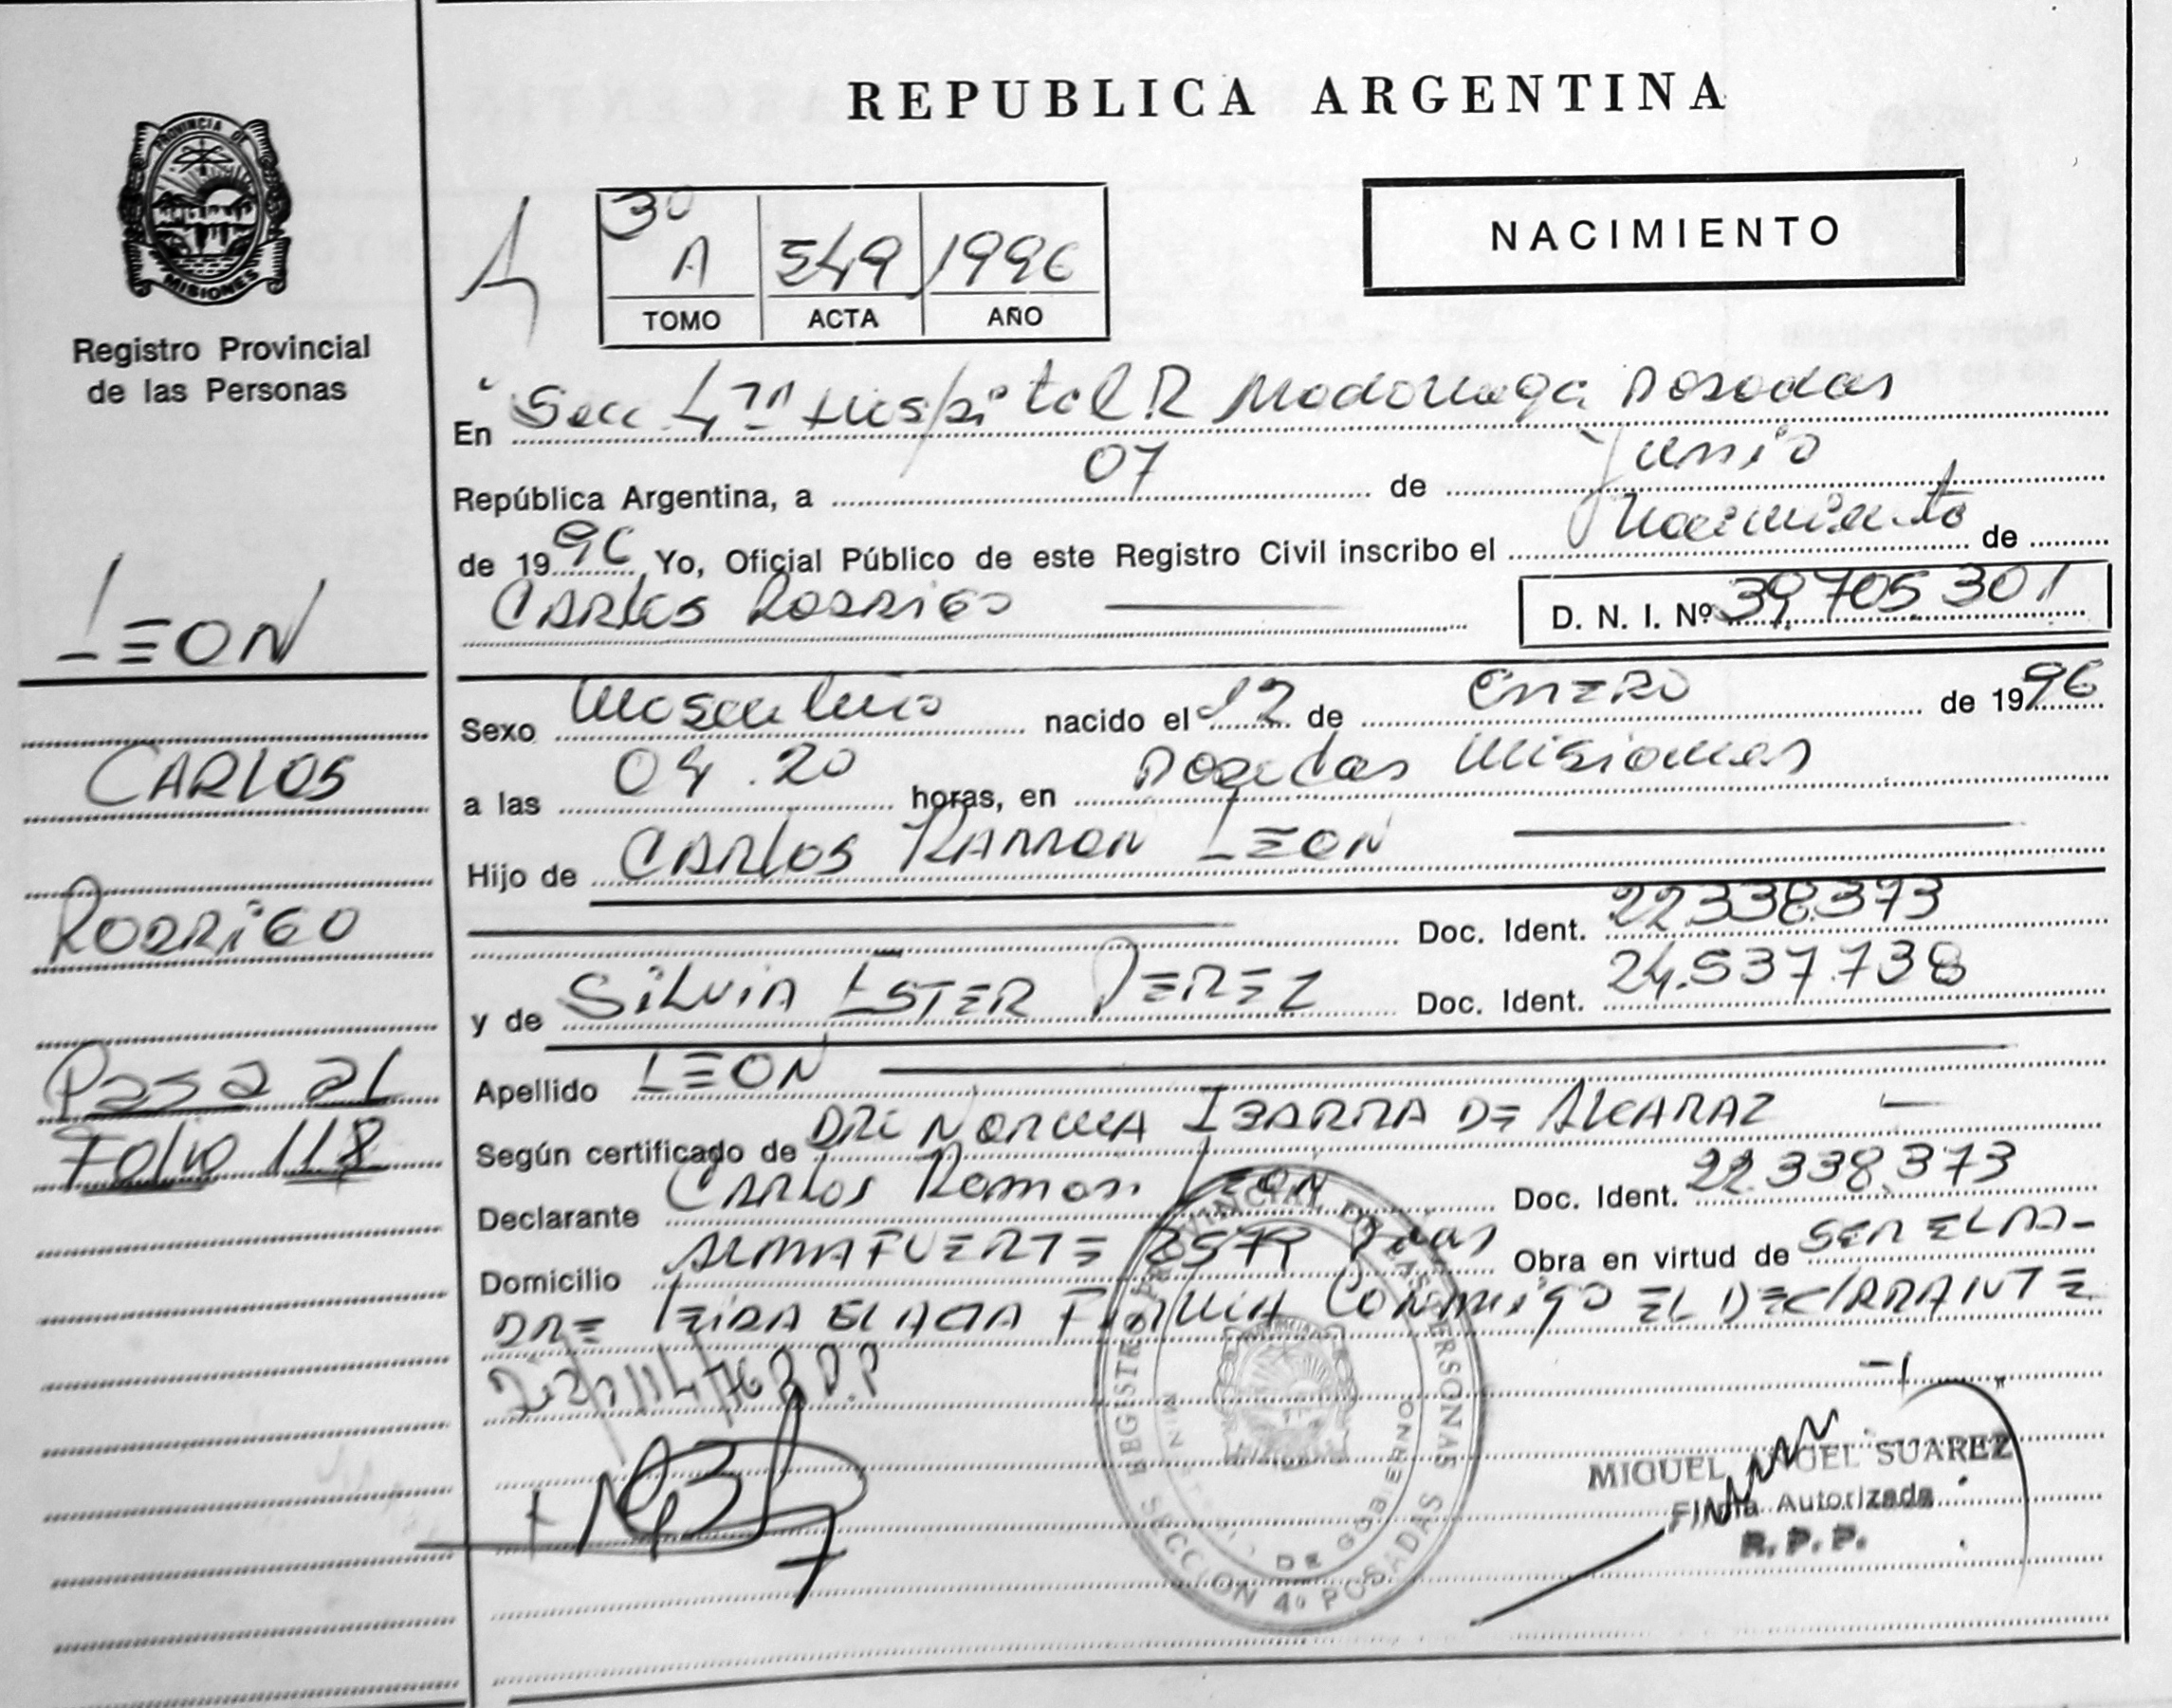 REPUBLICA ARGENTINA
PROVINCIA DE
MISIONES
Registro Provincial
de las Personas
NACIMIENTO
3º
A 549 1996
TOMO ACTA AÑO
En Secc. 4ta Hospital R Madariaga Posadas
República Argentina, a 07 de Junio
de 1996 Yo, Oficial Público de este Registro Civil inscribo el Nacimiento de
CARLOS RODRIGO
D. N. I. Nº 39.705.301
LEON
CARLOS
RODRIGO
Pasa al
Folio 118
Sexo Masculino nacido el 12 de ENERO de 1996
a las 04.20 horas, en Posadas Misiones
Hijo de CARLOS RAMON LEON
Doc. Ident. 22.338.373
y de SILVIA ESTER PEREZ Doc. Ident. 24.537.738
Apellido LEON
Según certificado de DRA NORMA IBARRA DE ALCARAZ
Declarante CARLOS Ramon LEON Doc. Ident. 22.338.373
Domicilio ALMAFUERTE Pdas Obra en virtud de SER EL PA-
DRE LEIDA EL ACTA FIRMA CONMIGO EL DECLARANTE
REGISTRO PROVINCIAL DE LAS PERSONAS
DE GOBIERNO
SECCION 4º POSADAS
MIGUEL ANGEL SUAREZ
Firma Autorizada
R. P. P.